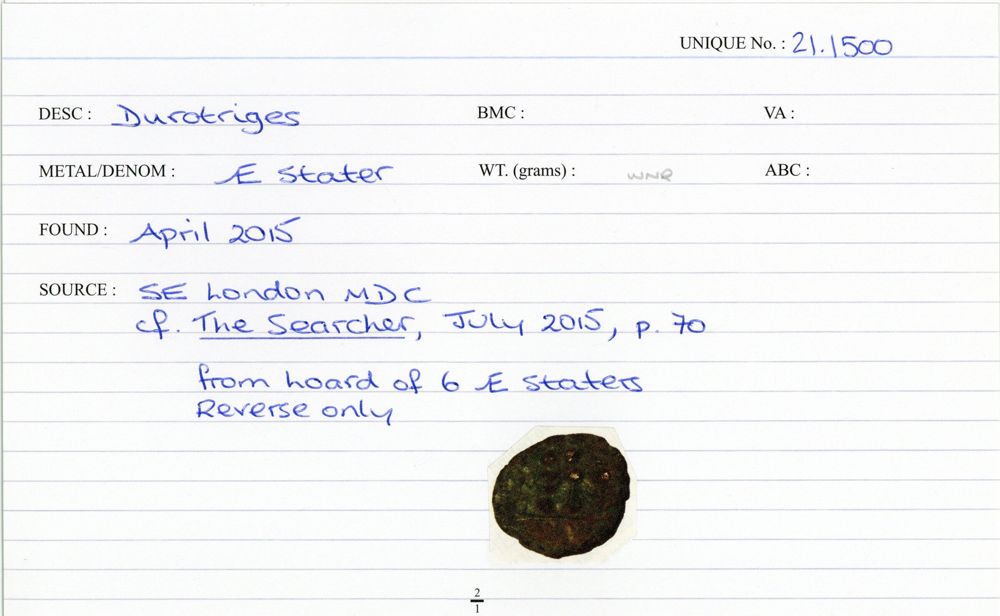 UNIQUE No. : 21.1500
DESC : Durotriges BMC : VA :
METAL/DENOM : Æ Stater WT. (grams) : WNR ABC :
FOUND : April 2015
SOURCE : SE London MDC
cf. The Searcher, July 2015, p. 70
from hoard of 6 Æ Staters
Reverse only
2
1